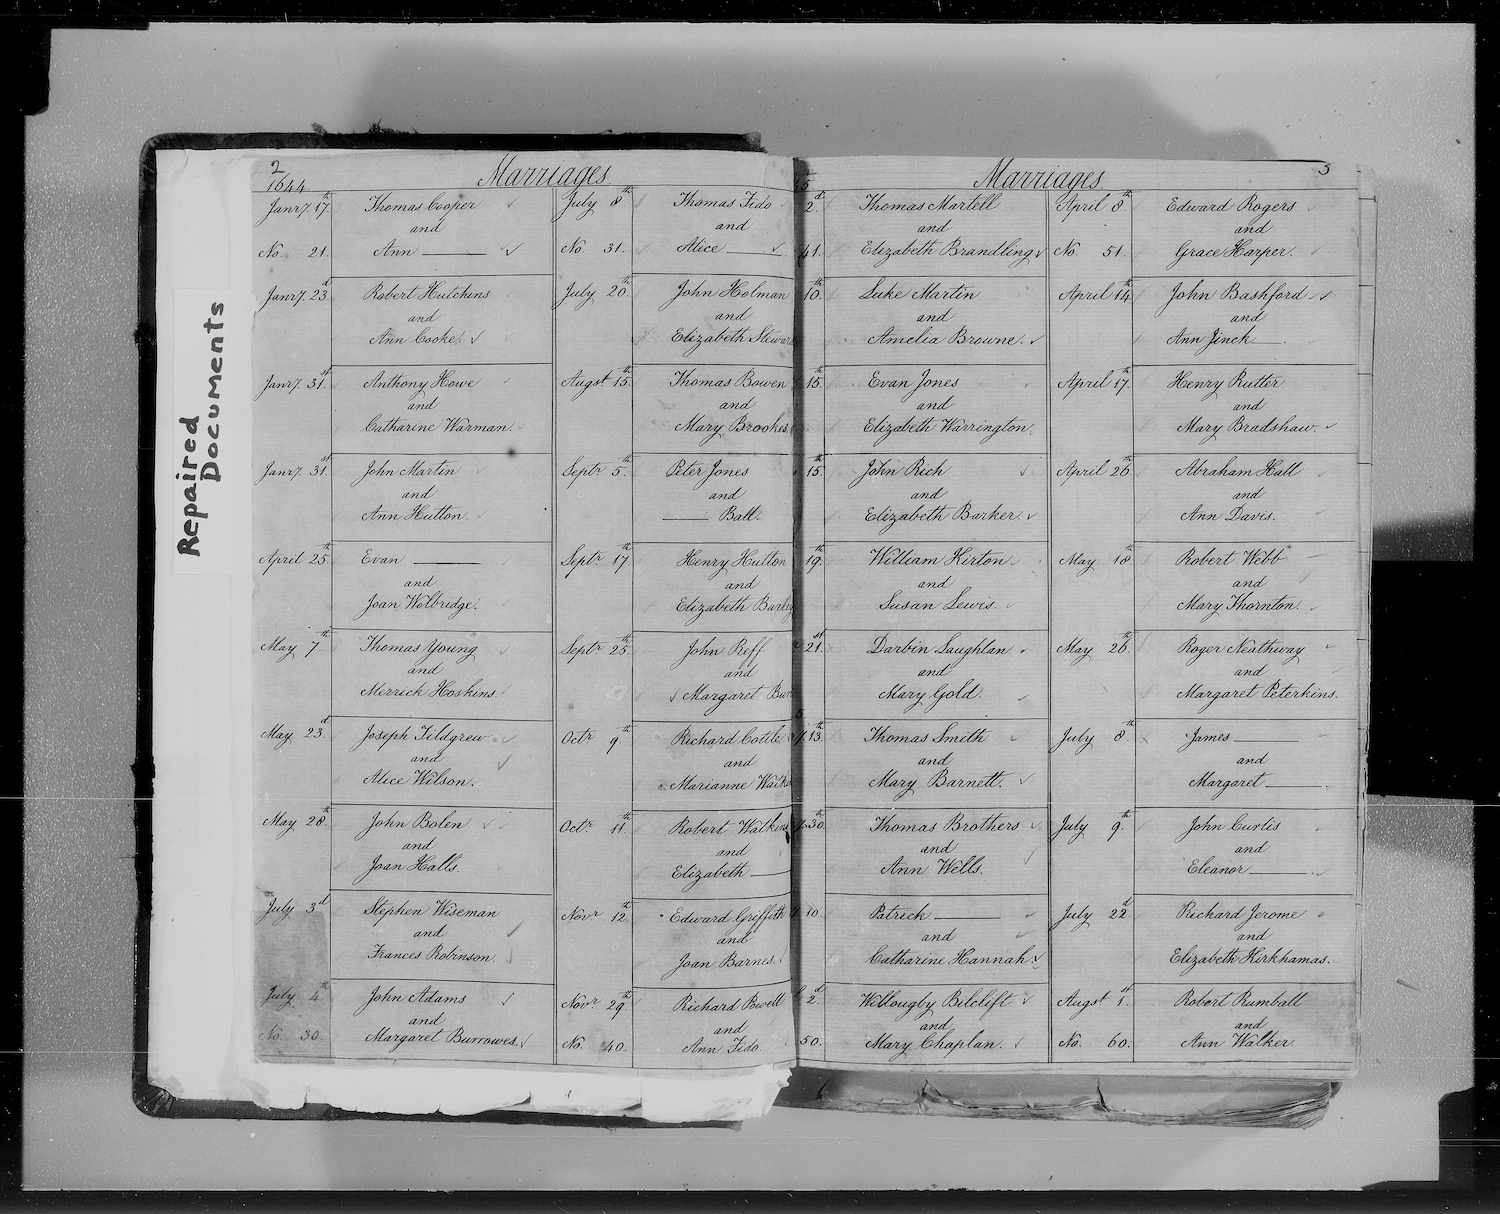 Repaired
Documents
2
Marriages
1644
Janry. 17th Thomas Cooper
and
No. 21. Ann ———
Janry. 23d Robert Hutchins
and
Ann Cooke.
Janry. 31st Anthony Howe
and
Catharine Warman.
Janry. 31st John Martin
and
Ann Hutton.
April 25th Evan ———
and
Joan Wolbridge.
May 7th Thomas Young
and
Merrick Hoskins.
May 23d Joseph Fildgrew
and
Alice Wilson.
May 28th John Bolen
and
Joan Halls.
July 3d Stephen Wiseman
and
Frances Robinson.
July 4th John Adams
and
No. 30. Margaret Burrowes.
July 8th Thomas Fido
and
No. 31. Alice ———
July 20th John Holman
and
Elizabeth
Augst 15th Thomas Bowen
and
Mary Brookes
Septr 5th Peter Jones
and
——— Ball.
Septr 17th Henry Hutton
and
Elizabeth
Septr 25th John Reff
and
Margaret
Octr 9th Richard
and
Marianne
Octr 11th Robert Watkins
and
Elizabeth ———
Novr 12th Edward Griffith
and
Joan Barnes.
Novr 29th Richard Powell
and
No. 40. Ann Fido.
Marriages
3
2d Thomas Martell
and
41. Elizabeth Brandling
10th Luke Martin
and
Amelia Browne.
15th Evan Jones
and
Elizabeth Warrington.
15th John Rich
and
Elizabeth Barker.
19th William Kirton
and
Susan Lewis.
21st Darbin Laughlan
and
Mary Gold.
13th Thomas Smith
and
Mary Barnett.
30th Thomas Brothers
and
Ann Wells.
10 Patrick ———
and
Catharine Hannah
2d Willougby Bilclift
and
50. Mary Chaplan.
April 8th Edward Rogers
and
No. 51. Grace Harper.
April 14th John Bashford
and
Ann Jinck ———
April 17th Henry Rutter
and
Mary Bradshaw.
April 26th Abraham Hall
and
Ann Davis.
May 18th Robert Webb
and
Mary Thornton.
May 26th Roger Neathway
and
Margaret Peterkins.
July 8th James ———
and
Margaret ———
July 9th John Curtis
and
Eleanor ———
July 22d Richard Jerome
and
Elizabeth Kirkhamas.
Augst 1st Robert Rumball
and
No. 60. Ann Walker.